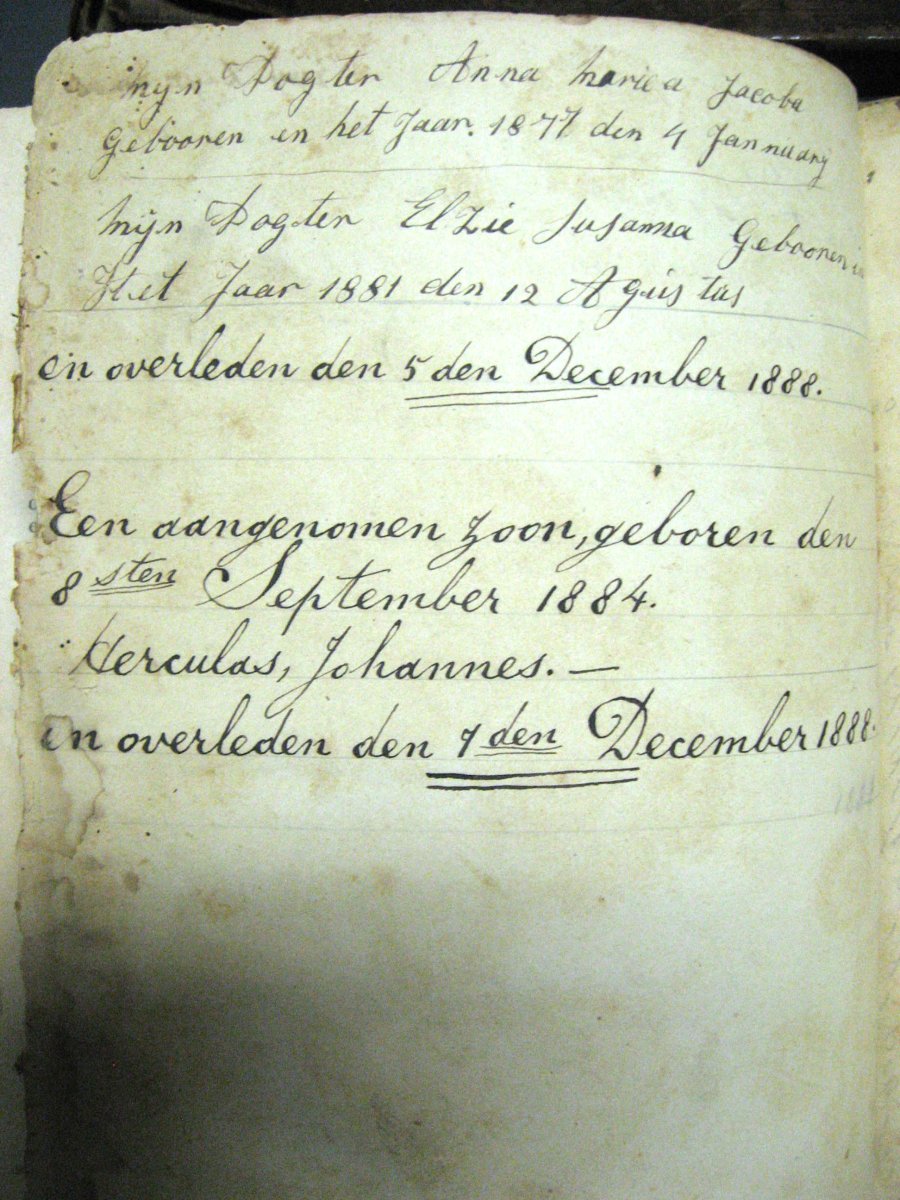 Mijn Dogter Anna Maria Jacoba
Gebooren en het Jaar. 1877 den 4 Jannuary
Mijn Dogter Elzie Susanna Gebooren in
Het Jaar 1881 den 12 Agustus
en overleden den 5 den December 1888.
Een aangenomen zoon, geboren den
8 sten September 1884.
Herculas, Johannes. —
en overleden den 7 den December 1888.